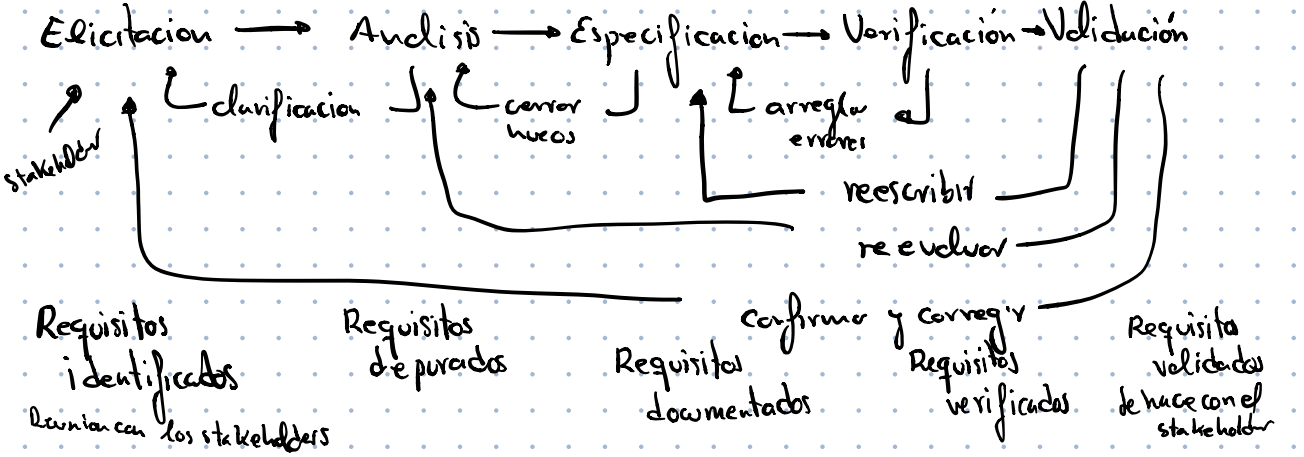 Elicitacion → Analisis → Especificacion → Verificación → Validación
clarificacion
cerrar
huecos
arreglar
errores
stakeholder
reescribir
reevaluar
confirmar y corregir
Requisitos
identificados
Reunion con los stakeholders
Requisitos
depurados
Requisitos
documentados
Requisitos
verificados
Requisitos
validados
se hace con el
stakeholder